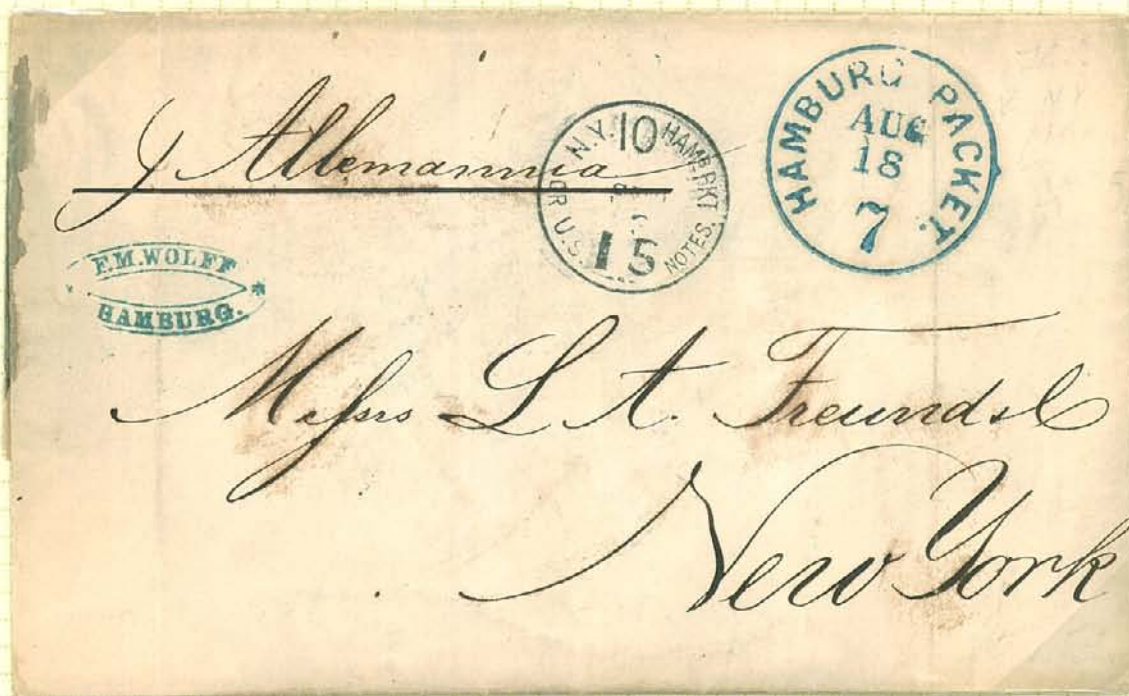 p Allemannia
N.Y. 10 HAMB. PKT.
OR U.S. 15 NOTES.
HAMBURG PACKET.
AUG
18
7
F.M. WOLFF
HAMBURG.
Messrs L A. Freund
New York